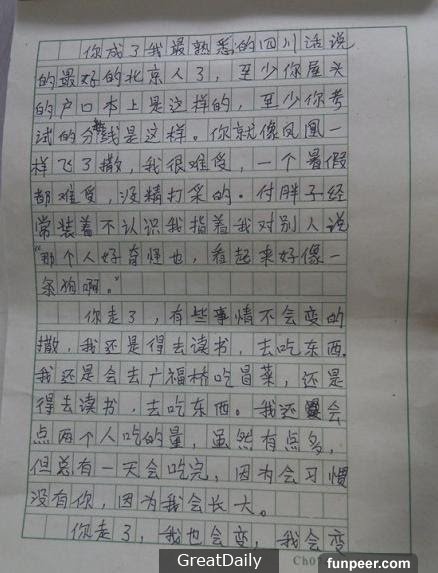 你成了我最熟悉的四川话说
的最好的北京人了，至少你屋头
的户口本上是这样的，至少你考
试的分数线是这样。你就像凤凰一
样飞了撒，我很难受，一个暑假
都难受，没精打采的。付胖子经
常装着不认识我指着我对别人说
“那个人好奇怪也，看起来好像一
条狗啊。”
你走了，有些事情不会变的
撒，我还是得去读书，去吃东西。
我还是会去广福桥吃冒菜，还是
得去读书，去吃东西。我还会
点两个人吃的量，虽然有点多，
但总有一天会吃完，因为会习惯
没有你，因为我会长大。
你走了，我也会变，我会变
GreatDaily
funpeer.com